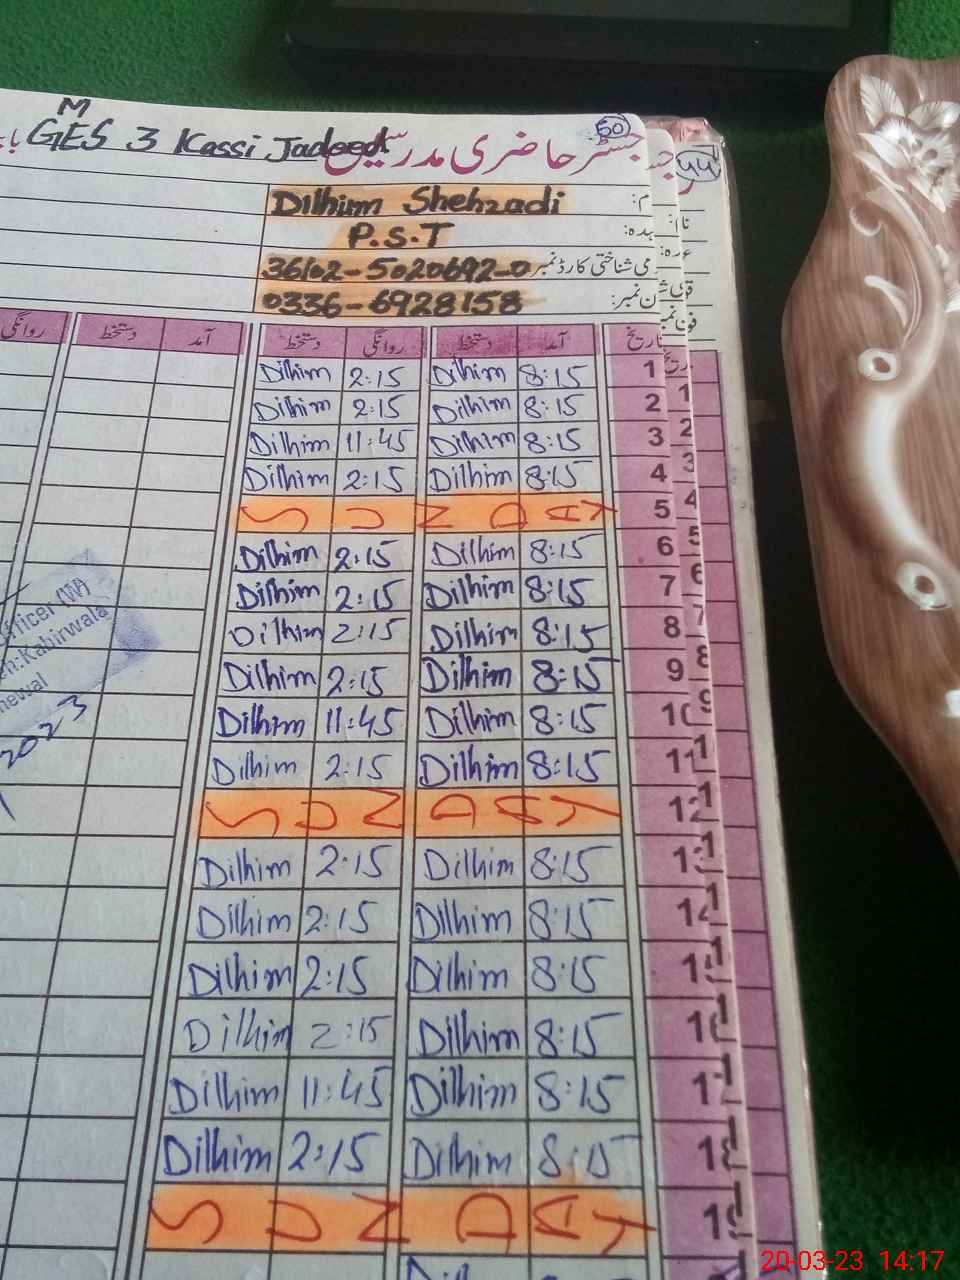 M
GES 3 Kassi Jadeed رجسٹر حاضری مدرسین 50
44
Dilhim Shehzadi
P.S.T
36102-5020692-0 قومی شناختی کارڈ نمبر
0336-6928158
روانگی دستخط آمد دستخط روانگی دستخط آمد تاریخ
Dilhim 2:15 Dilhim 8:15 1
Dilhim 2:15 Dilhim 8:15 2
Dilhim 11:45 Dilhim 8:15 3
Dilhim 2:15 Dilhim 8:15 4
SUNDAY 5
Dilhim 2:15 Dilhim 8:15 6
Dilhim 2:15 Dilhim 8:15 7
Dilhim 2:15 Dilhim 8:15 8
Dilhim 2:15 Dilhim 8:15 9
Dilhim 11:45 Dilhim 8:15 10
Dilhim 2:15 Dilhim 8:15 11
SUNDAY 12
Dilhim 2:15 Dilhim 8:15 13
Dilhim 2:15 Dilhim 8:15 14
Dilhim 2:15 Dilhim 8:15 15
Dilhim 2:15 Dilhim 8:15 16
Dilhim 11:45 Dilhim 8:15 17
Dilhim 2:15 Dilhim 8:15 18
SUNDAY 19
fficer (W)
n:Kabirwala
newal
2023
20-03-23 14:17